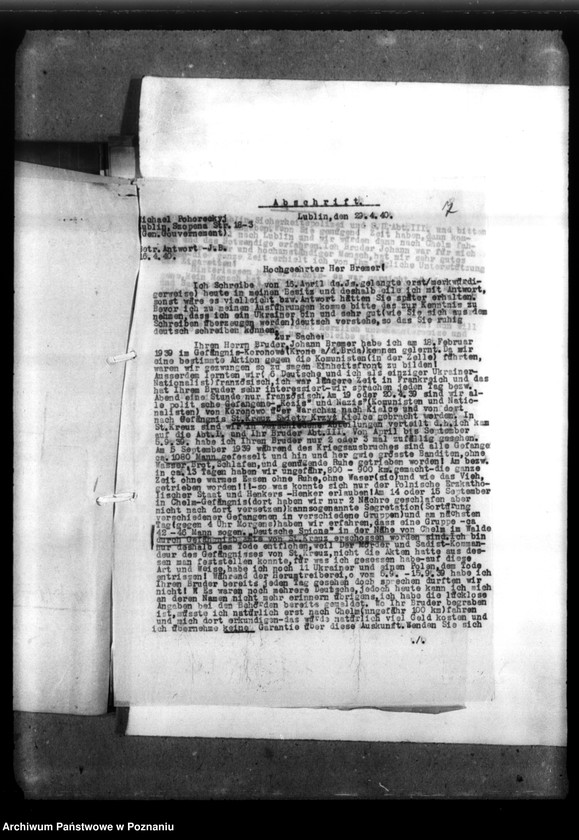 Abschrift.
Michael Pohoreckyj
Lublin, Szopena Str. 18-3
(Gen.Gouvernement).
Lublin, den 29.4.40.
Betr. Antwort -J.B.
16.4.40.
Hochgeehrter Her Bremer!
Ich Schreibe von 16. April ds.Js. gelangte erst/merkwürdi-
gerweise/ heute in meinen Besitz und deshalb eile ich mit Antwort,
sonst wäre es vielleicht bzw. Antwort hätten Sie später erhalten.
Bevor ich zu meinen Ausführungen komme bitte das zur Kenntnis zu
nehmen, dass ich ein Ukrainer bin und sehr gut/wie Sie sich aus dem
Schreiben überzeugen werden/deutsch verstehe, so das Sie ruhig
deutsch schreiben können.
Zur Sache:
Ihren Herrn Bruder Johann Bremer habe ich am 18. Februar
1939 in Gefängnis-Koronowo/Krone a/d.Brda/kennen gelernt. Da wir
eine bestimmte Aktion gegen die Komunisten/in der Zelle/ führten,
waren wir gezwungen so zu sagen Einheitsfront zu bilden/
Ausserdem lernten wir/ 3 Deutsche und ich als einziger Ukrainer-
Nationalist/französisch, ich war längere Zeit in Frankreich und das
hat Ihren Bruder sehr interessiert-wir sprachen jeden Tag bezw.
Abend eine Stunde nur französisch. Am 19 oder 20.4.39 sind wir al-
le polit. sche Gefangene "Komis" und Nazis/Komunisten und Natio-
nalisten/ von Koronowo aus überrascht nach Kielce und von dort
nach Gefängnis St.Kreuz Kielce gebracht worden. In
St.Kreuz sind wir in 2 Abteilungen verteilt d.h. ich kam
auf die Abt.I. und Ihr Bruder Abt.III. Vom April bis September
5.9.39. habe ich Ihren Bruder nur 2 oder 3 mal zufällig gesehen.
Am 5 September 1939 während des Kriegsausbruches sind alle Gefange
ca.1080 Mann, gefesselt und hin und her wie grösste Banditen, ohne
Wasser, Brot, Schlafen, und genügende Ruhe getrieben worden/ d. bezw.
in ca.13 Tagen haben wir ungefähr 800 - 900 km. gemacht-die ganze
Zeit ohne warmes Essen ohne Ruhe, ohne Wasser/nie/und wie das Vieh
getrieben worden/!!/so was konnte sich nur der Polnische Brakatho-
lischer Staat und Henkers -Henker erlauben/ Am 14 oder 15 September
in Chelm-Gefängnis/dort haben wir nur 2 Nächte geschlafen oder
nicht nach dort versetzen/ sogenannte Segretation/Sortierung
verschiedener Gefangenen in verschiedene Gruppen/ und am nächsten
Tag/gegen 4 Uhr Morgens/haben wir erfahren, dass eine Gruppe -ca
42 - 45 Mann sogen. "Deutsche Spione" in der Nähe von Chelm in Walde
erschossen worden sind. Ich bin
nur deshalb dem Tode entflohen, weil der Mörder und Sadist-Komman-
dant des Gefängnisses von St.Kreuz, nicht die Akten hatte aus des-
sen man feststellen konnte, für was ich gesessen habe-auf diese
Art und Weise, habe ich noch 11 Ukrainer und einen Polen, dem Tode
entrissen/ Während der Herustreiberei, d.o vom 5.9. -15.9.39 habe ich
Ihren Bruder bereits jeden Tag gesehen doch sprechen durften wir
nicht! E s waren noch mehrere Deutsche, jedoch heute kann ich sich
an deren Namen nicht mehr erinnern übrigens, ich habe die lücklose
Angaben bei den Behörden bereits gemeldet. Wo Ihr Bruder begraben
ist, müsste ich natürlich erst nach Chelm/ungefähr 100 km/fahren
und mich dort erkundigen-das würde natürlich viel Geld kosten und
ich übernehme keine Garantie über diese Auskunft. Wenden Sie sich
./.
Archiwum Państwowe w Poznaniu